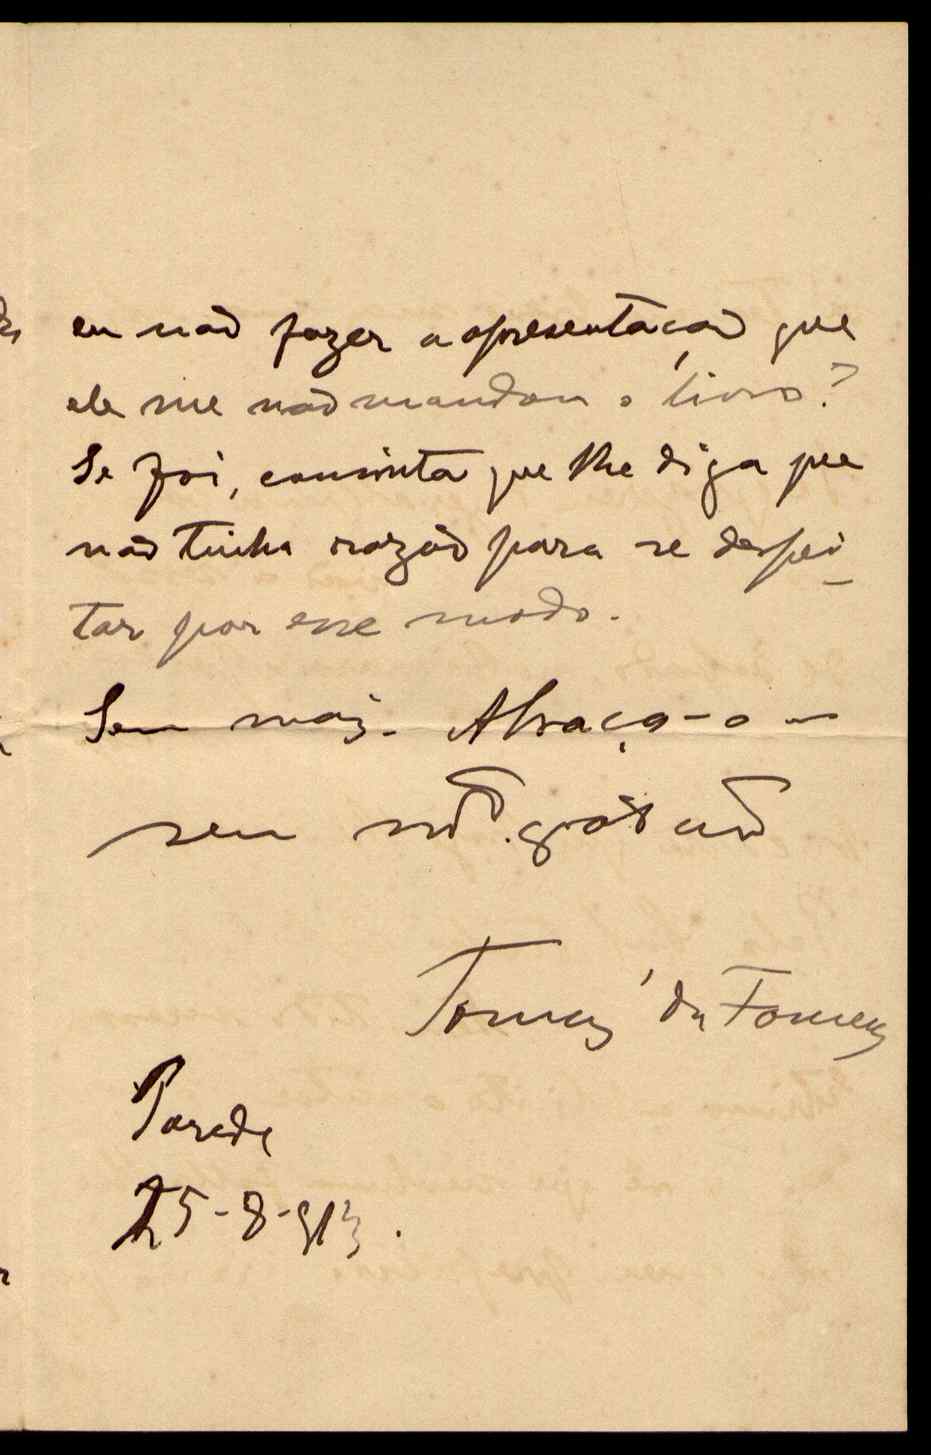 eu não fazer a apresentação que
ele me não mandou o livro?
Se foi, consinta que lhe diga que
não tinha razão para se despei-
tar por esse modo.
Sem mais. Abraça-o o
seu mto. grato am
Tomaz da Fonseca
Parede
25-8-913.